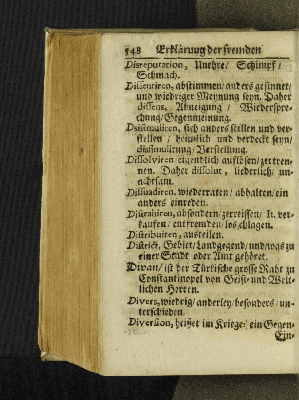 548 Erklärung der fremden
Disreputation, Unehre/ Schimpf/
Schmach.
Dissentiren, abstimmen/ anders gesinnet/
und wiedriger Meynung seyn. Daher
dissens, Abneigung / Wiederspre-
chung/ Gegenmeinung.
Dissimuliren, sich anders stellen und ver-
stellen / heimlich und verdeckt seyn/
dissimulirung/ Verstellung.
Dissolviren eigendlich auflösen/ zertren-
nen. Daher dissolut, liederlich/ un-
achtsam.
Dissuadiren, wiederraten/ abhalten/ ein
anders einreden.
Distrahiren, absondern/ zerreissen/ It. ver-
kaufen/ entfremden/ losschlagen.
Distribuiren, austeilen.
District, Gebiet/ Landgegend/ und was zu
einer Stadt oder Amt gehöret.
Divan/ ist der Türkische grosse Raht zu
Constantinopel von Geist- und Welt-
lichen Herren.
Divers, wiedrig/ anderley/ besonders/ un-
terschieden.
Diversion, heißet im Kriege/ ein Gegen-
Ein-